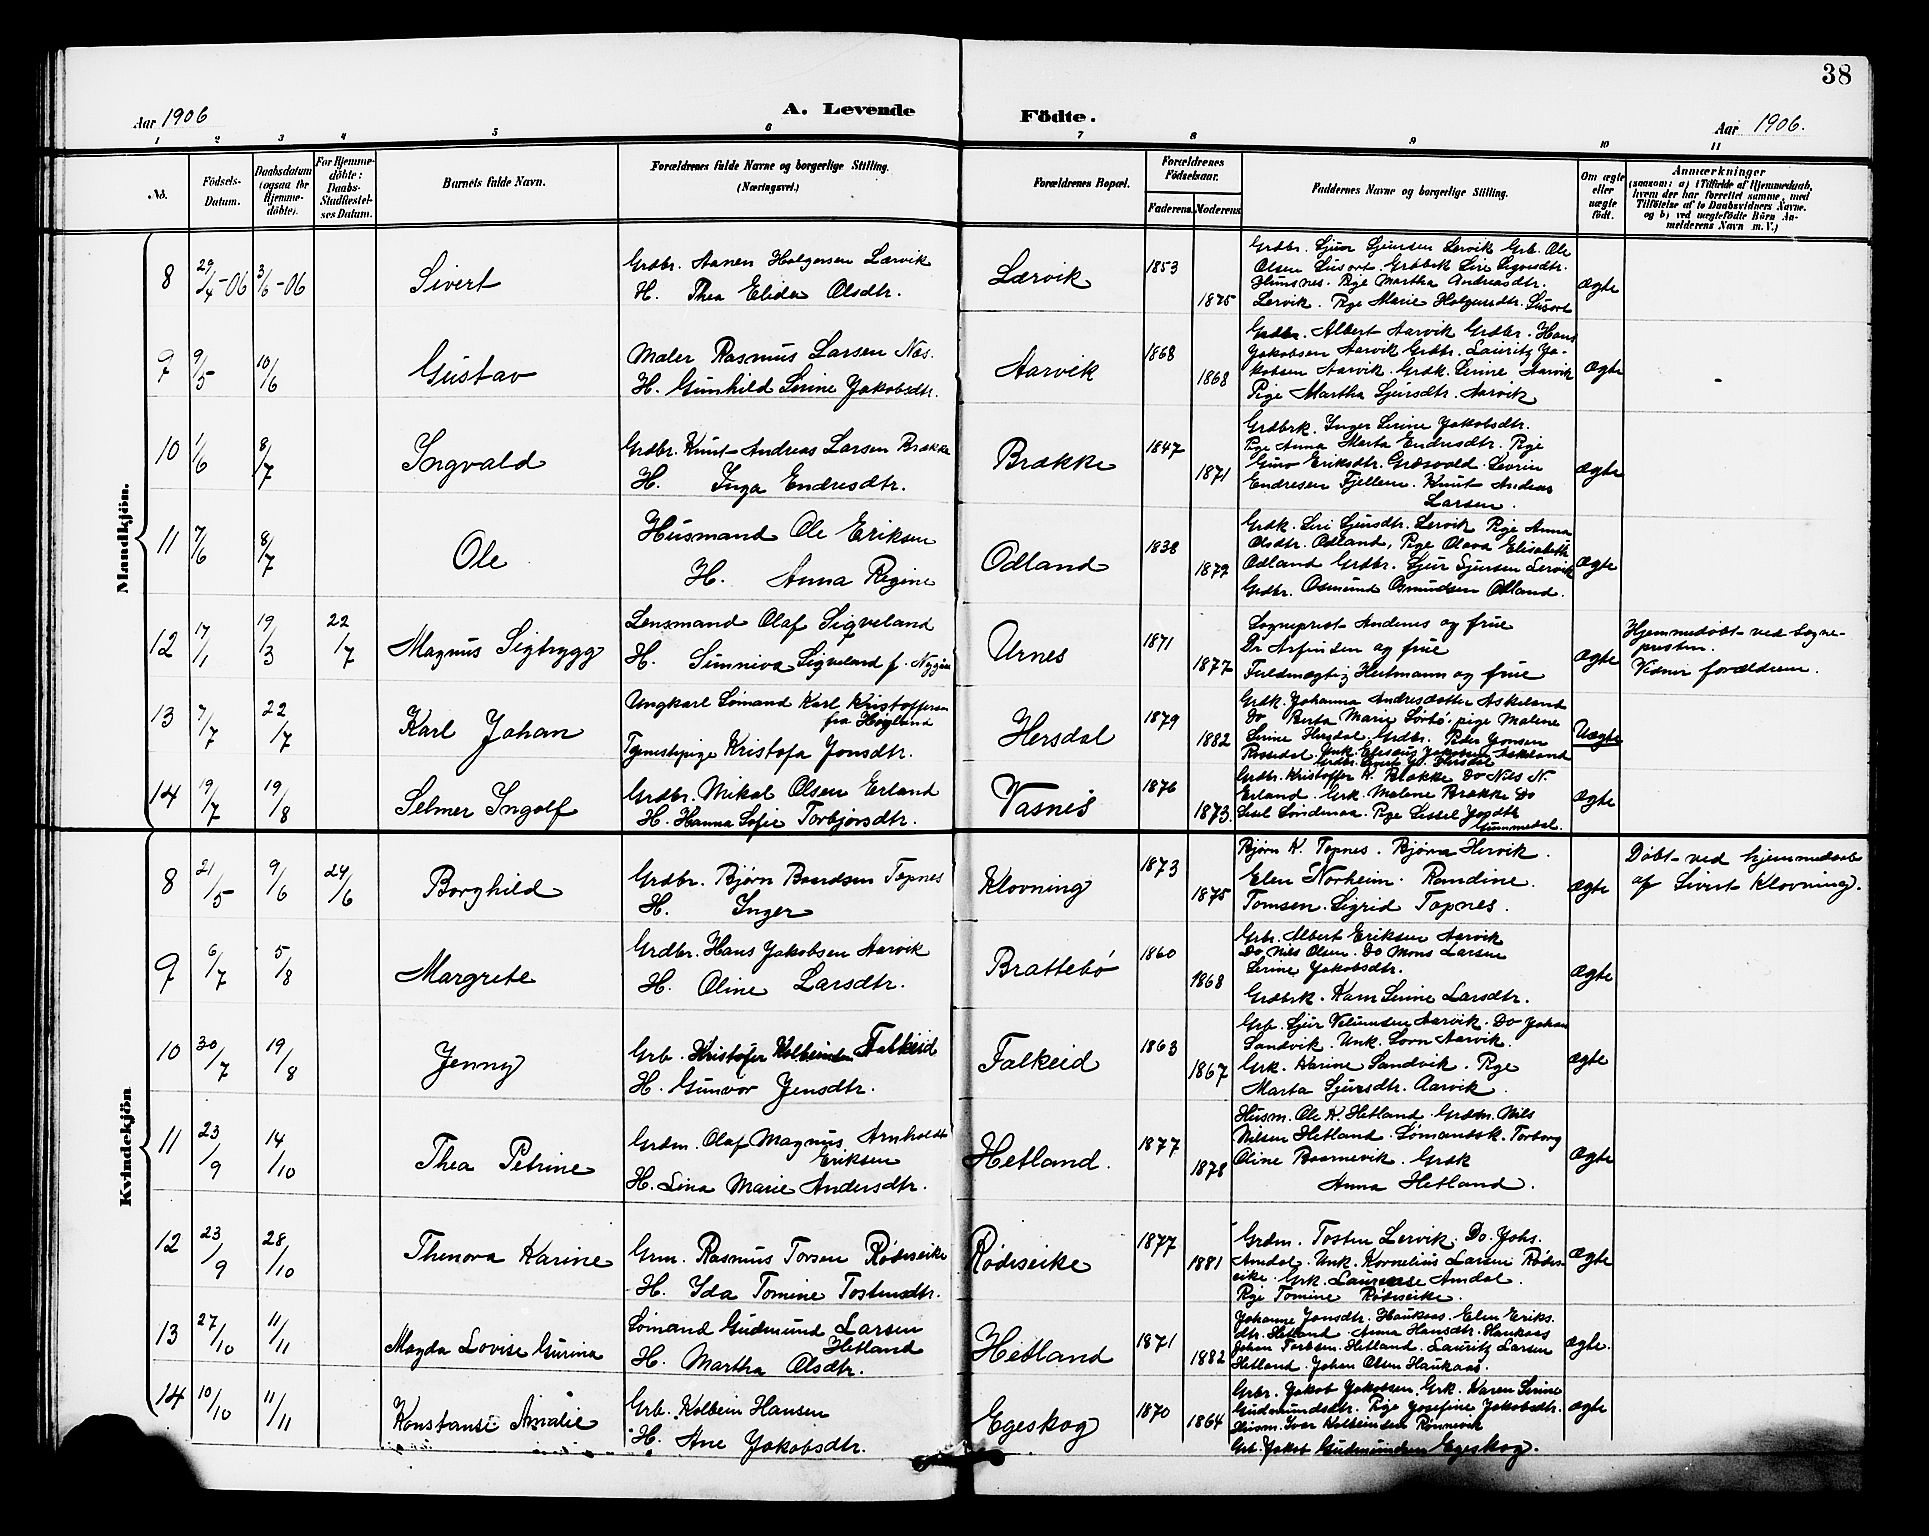 38
Aar 1906
A. Levende
Födte.
Aar 1906.
1 2 3 4 5 6 7 8 9 10 11
No.
Födsels-
Datum.
Daabsdatum
(ogsaa for
Hjemme-
döbte).
For Hjemme-
döbte:
Daabs-
Stadfæstel-
ses Datum.
Barnets fulde Navn.
Forældrenes fulde Navne og borgerlige Stilling.
(Næringsvei.)
Forældrenes Bopæl.
Forældrenes
Födselsaar.
Faderens. Moderens.
Faddernes Navne og borgerlige Stilling.
Om ægte
eller
uægte
födt.
Anmærkninger
(saasom: a) i Tilfælde af Hjemmedaab,
hvem der har forrettet samme, med
Tilföielse af to Daabsvidners Navne.
og b) ved uægtefödte Börn An-
melderens Navn m. V.)
Mandkjön.
8 29/4-06 3/6-06 Sivert
Grdbr. Aanen Holgersen Lærvik
H. Thea Elida Olsdtr.
Lærvik 1853 1875
Grdbr. Sjur Sjursen Lervik Grb. Ole
Olsen Susort. Grdbrk Siri Sigvrsdtr.
Pige Martha Andreasdtr.
Lervik. Pige Marie Holgersdtr. Susort
Ægte
9 9/5 10/6 Gustav
Maler Rasmus Larsen Næs.
H. Gunhild Serine Jakobsdtr.
Aarvik 1868 1868
Grdbr. Albert Aarvik Grdbr. Hans
Jakobsen Aarvik Grdbr. Lauritz Ja-
kobsen Aarvik. Grdk. Serine Aarvik
Pige Martha Sjursdtr. Aarvik
Ægte
10 1/6 8/7 Ingvald
Grdbr. Knut Andreas Larsen Brække
H. Inga Endresdtr.
Brække 1847 1871
Grdbrk. Inger Serine Jakobsdtr.
Pige Anna Marta Endresdtr. Pige
Guro Eriksdtr. Græsvold. Sevrin
Endresen Fjellem. Knut Andreas
Larsen.
Ægte
11 7/6 8/7 Ole
Husmand Ole Eriksen
H. Anna Regine
Odland 1838 1872
Grdk. Siri Sjursdtr. Lervik Pige Anna
Olsdtr. Odland, Pige Olava Elisabeth
Odland Grdbr. Sjur Sjursen Lervik
Grdbr. Osmund Osmundsen Odland.
Ægte
12 17/1 19/3 22/7 Magnus Sigtrygg
Lensmand Olaf Sigveland
H. Sunniva Sigveland f.
Urnes 1871 1877
Sogneprest Andenes og frue
Dr Arfinsen og frue
Fuldmægtig Heitmann og frue
Ægte
Hjemmedøbt ved sogne-
presten.
Vidner forældrene.
13 7/7 22/7 Karl Johan
Ungkarl Sømand Karl Kristoffersen
fra Høgland
Tjenestepige Kristofa Jonsdtr.
Hersdal 1879 1882
Grdk. Johanna Andresdatter Askeland
Do Berta Marie Sørbø. pige Malene
Serine Hersdal. Grdbr. Peder Jonsen
Rossedal Unk. Elisæus Jakobsen Askeland
Uægte
14 19/7 19/8 Selmer Ingolf
Grdbr. Mikal Olsen Erland
H. Hanna Sofie Torbjørsdtr.
Vasnes 1876 1873
Grdbr. Kristoffer K. Brække Do Nils N.
Erland. Grk. Malene Brække Do
Sisel Søndenaa. Pige Sissel
Gummedal.
Ægte
Kvindekjön
8 21/5 9/6 24/6 Borghild
Grdbr. Bjørn Baardsen Topnes
H. Inger
Klovning 1873 1875
Bjørn K. Topnes. Bjørn Hervik.
Elen Norheim. Randine
Tomsen. Sigrid Topnes.
Ægte
Døbt ved hjemmedaab
af Sivert Klovning.
9 6/7 5/8 Margrete
Grdbr. Hans Jakobsen Aarvik
H. Oline Larsdtr.
Brattebø 1860 1868
Grbr. Albert Eriksen Aarvik
Do Nils Olsen. Do Mons Larsen
Serine Jakobsdtr.
Grdbrk. Karn Serine Larsdtr.
Ægte
10 30/7 19/8 Jenny
Grb. Kristofer Kolbeinsen Falkeid
H. Gunvor Jensdtr.
Falkeid 1863 1867
Grb. Sjur Velumsen Aarvik. Do Johan
Sandvik. Unk. Sorn Aarvik.
Grk. Karine Sandvik. Pige
Marta Sjursdtr. Aarvik.
Ægte
11 23/9 14/10 Thea Petrine
Grdm. Olaf Magnus Arnholdt
Eriksen
H. Lina Marie Andersdtr.
Hetland. 1877 1878
Husm. Ole K. Hetland. Grdm. Nils
Nilsen Hetland. Sømandsk. Torborg
Oline Baarnevik. Grdk
Anna Hetland.
Ægte
12 23/9 28/10 Thenora Karine
Grm. Rasmus Torsen Rødiseike
H. Ida Tomine Tostensdtr.
Rødiseike 1877 1881
Grdm. Tosten Lervik. Do. Johs.
Amdal. Unk. Kornelius Larsen Rødis-
eike. Grk. Laurense Amdal.
Pige Tomine Rødiseike.
Ægte
13 27/10 11/11 Magda Lovise Gurina
Sømand Gudmund Larsen
Hetland
H. Martha Olsdtr.
Hetland 1871 1882
Johanne Jonsdtr. Haukaas. Elen Eriks.
dtr. Hetland Anna Hansdtr. Haukaas
Johan Torbsen. Hetland. Lauritz Larsen
Hetland. Johan Olsen Haukaas.
ægte.
14 10/10 11/11 Konstanse Amalie
Grb. Kolbein Hansen
H. Ane Jakobsdtr.
Egeskog 1870 1864
Grbr. Jakob Jakobsen. Grk. Karen Serine
Gudmundsdtr. Pige Josefine Jakobsdtr.
Husm. Ivar Kolbeinsen Rinnevik
Grb. Jakob Gudmundsen Egeskog.
ægte